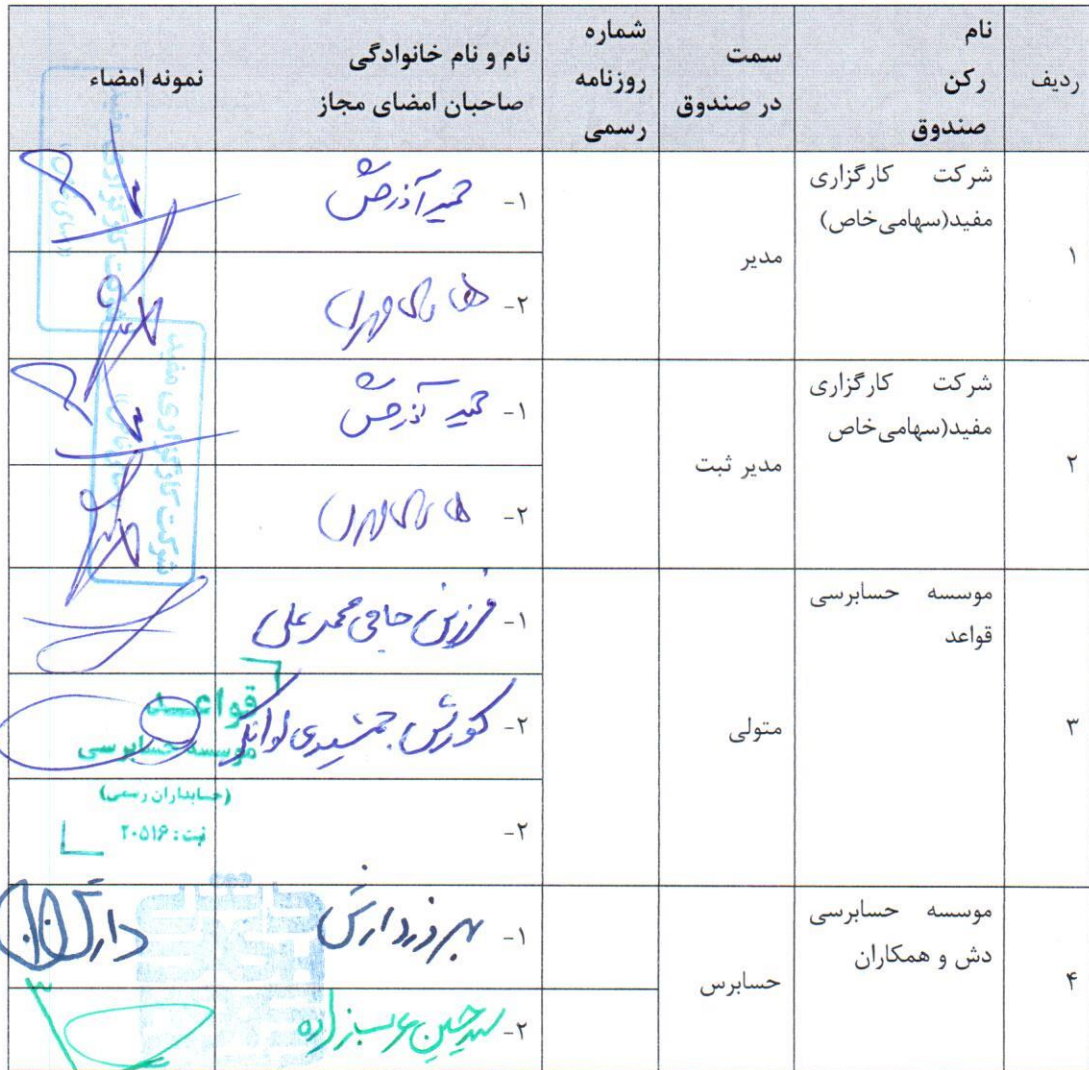 ردیف
نام
رکن
صندوق
سمت
در صندوق
شماره
روزنامه
رسمی
نام و نام خانوادگی
صاحبان امضای مجاز
نمونه امضاء
۱
شرکت کارگزاری
مفید(سهامی‌خاص)
مدیر
۱- حمید آذرخش
۲-
شرکت کارگزاری مفید
(سهامی خاص)
۲
شرکت کارگزاری
مفید(سهامی‌خاص
مدیر ثبت
۱- حمید آذرخش
۲-
شرکت کارگزاری مفید
(سهامی خاص)
۳
موسسه حسابرسی
قواعد
متولی
۱- فرزین حاجی محمد علی
۲- کورش جمشیدی
۲-
قواعد
موسسه حسابرسی
(حسابداران رسمی)
ثبت: ۲۰۵۱۶
۴
موسسه حسابرسی
دش و همکاران
حسابرس
۱- بهروز دارش
دارش
۲- سید حسین عرب زاده